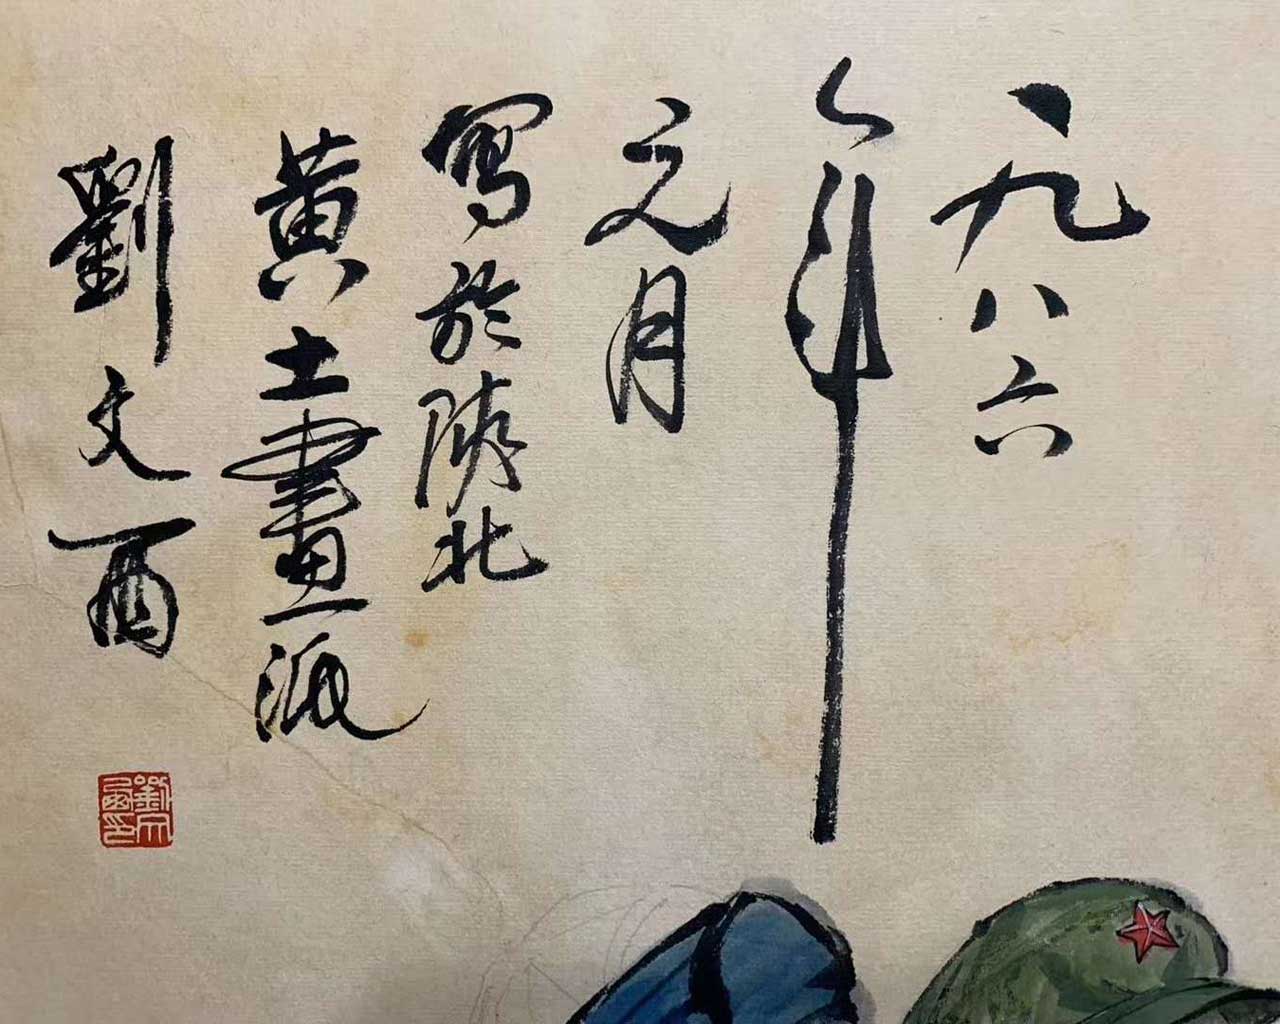 一九八六
年
元月
寫於陝北
黄土畫派
劉文西
劉文西印